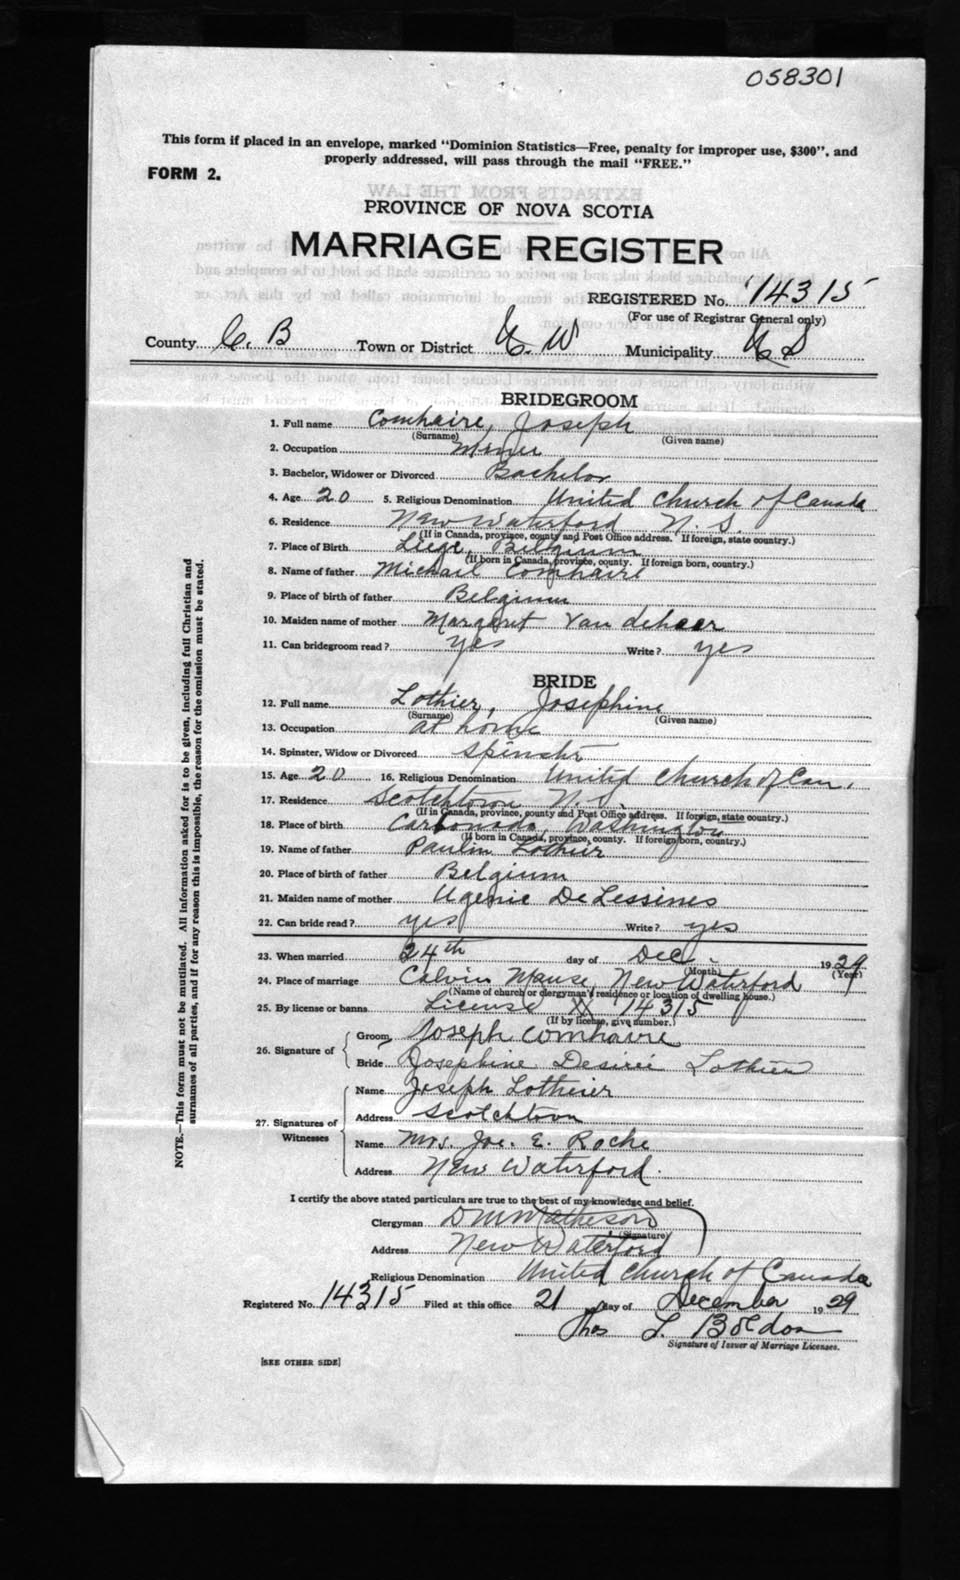 058301
This form if placed in an envelope, marked "Dominion Statistics—Free, penalty for improper use, $300", and
properly addressed, will pass through the mail "FREE."
FORM 2.
PROVINCE OF NOVA SCOTIA
MARRIAGE REGISTER
REGISTERED No. 14315
(For use of Registrar General only)
County C. B Town or District N. W Municipality
BRIDEGROOM
1. Full name Comhaire, Joseph
(Surname) (Given name)
2. Occupation Miner
3. Bachelor, Widower or Divorced Bachelor
4. Age 20 5. Religious Denomination United Church of Canada
6. Residence New Waterford N. S.
(If in Canada, province, county and Post Office address. If foreign, state country.)
7. Place of Birth Liege, Belgium
(If born in Canada, province, county. If foreign born, country.)
8. Name of father Michael Comhaire
9. Place of birth of father Belgium
10. Maiden name of mother Margaret Van deheer
11. Can bridegroom read? yes Write? yes
BRIDE
12. Full name Lothier, Josephine
(Surname) (Given name)
13. Occupation at home
14. Spinster, Widow or Divorced Spinster
15. Age 20 16. Religious Denomination United Church of Can.
17. Residence Scotchtown N. S.
(If in Canada, province, county and Post Office address. If foreign, state country.)
18. Place of birth Carbonado, Washington
(If born in Canada, province, county. If foreign born, country.)
19. Name of father Paulin Lothier
20. Place of birth of father Belgium
21. Maiden name of mother Ugenie DeLessines
22. Can bride read? yes Write? yes
23. When married 24th day of Dec. 1929
(Month) (Year)
24. Place of marriage Calvin Manse New Waterford
(Name of church or clergyman's residence or location of dwelling house.)
25. By license or banns License N 14315
(If by license, give number.)
26. Signature of Groom Joseph Comhaire
Bride Josephine Desireé Lothier
27. Signatures of Witnesses
Name Joseph Lotheier
Address Scotchtown
Name Mrs. Joe. E. Roche
Address New Waterford.
I certify the above stated particulars are true to the best of my knowledge and belief.
Clergyman D M Matheson
(Signature)
Address New Waterford
Religious Denomination United Church of Canada
Registered No. 14315 Filed at this office 21 day of December 1929
Thos L. Boldon
Signature of Issuer of Marriage Licenses.
[SEE OTHER SIDE]
NOTE.—This form must not be mutilated. All information asked for is to be given, including full Christian and
surnames of all parties, and if for any reason this is impossible, the reason for the omission must be stated.